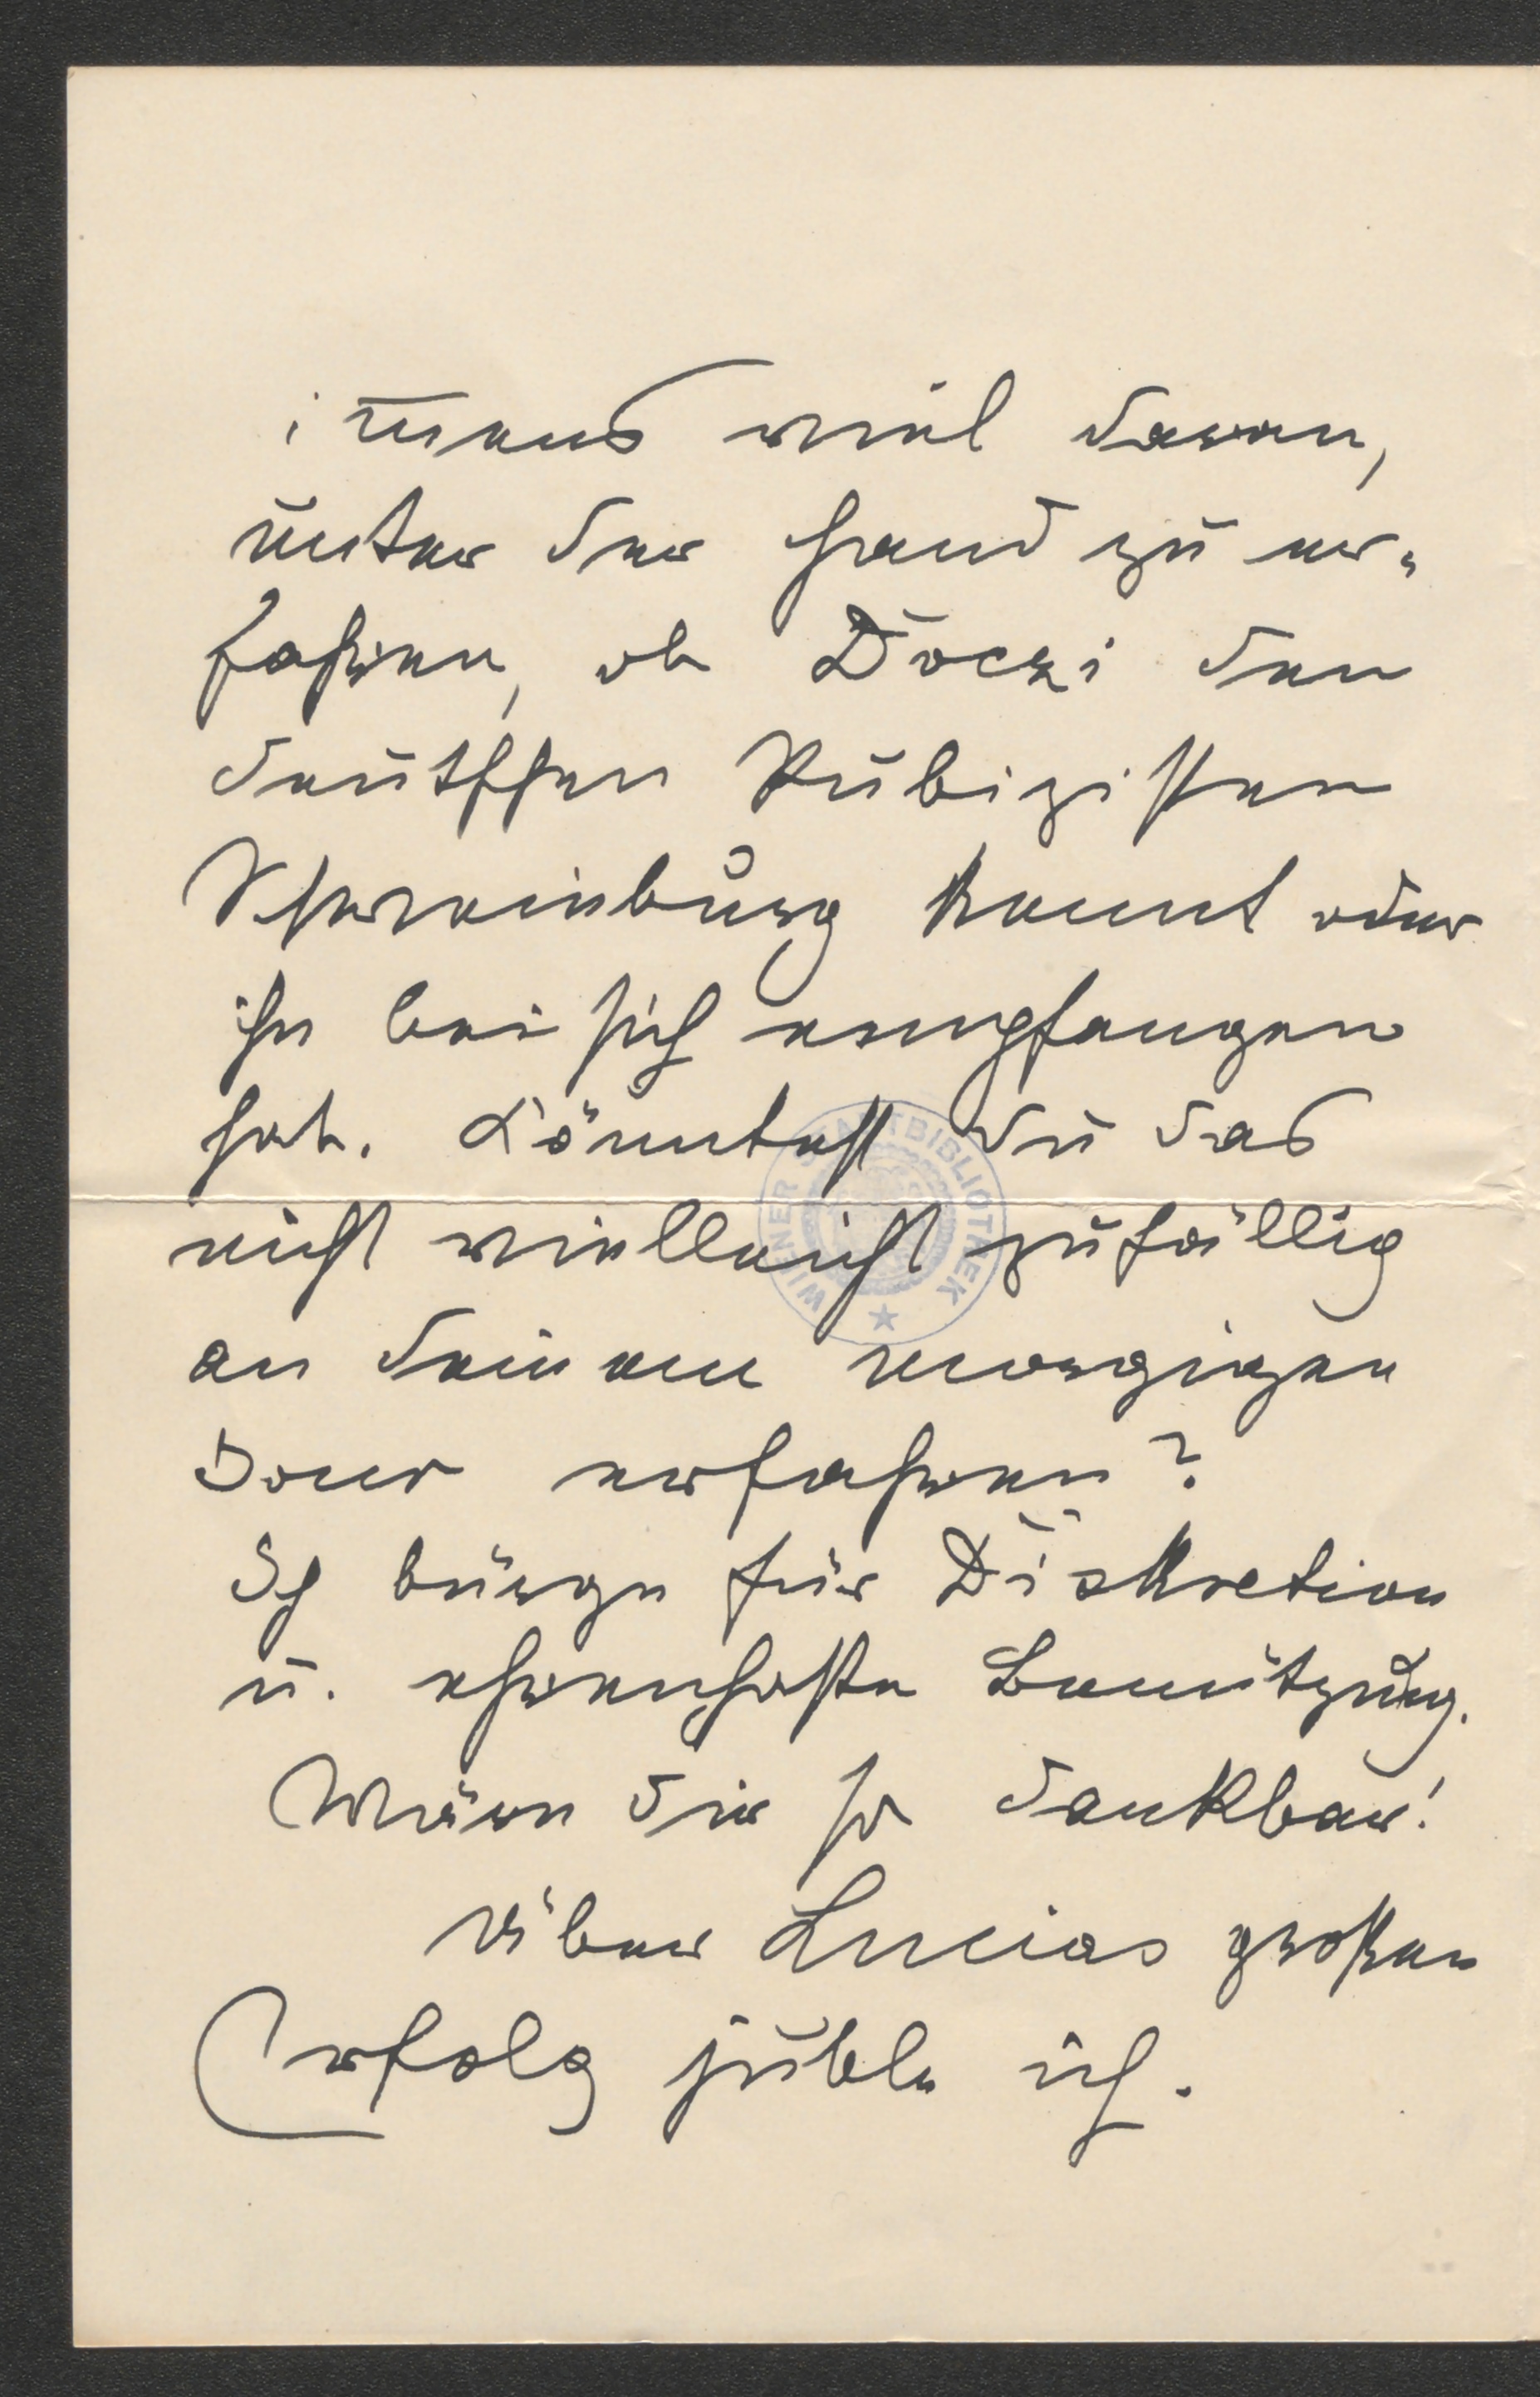 imens viel daran,
unter der Hand zu er-
fahren, ob Doczi den
deutschen Publizisten
Schweinburg kennt oder
ihn bei sich empfangen
hat. Könntest Du das
nicht vielleicht zufällig
an Deinem morgigen
Jour erfahren?
Ich bürge für Diskretion
u. ehrenhafte Benützung.
Wäre Dir so dankbar!
Über Lucias großen
Erfolg juble ich.
WIENER STADTBIBLIOTHEK